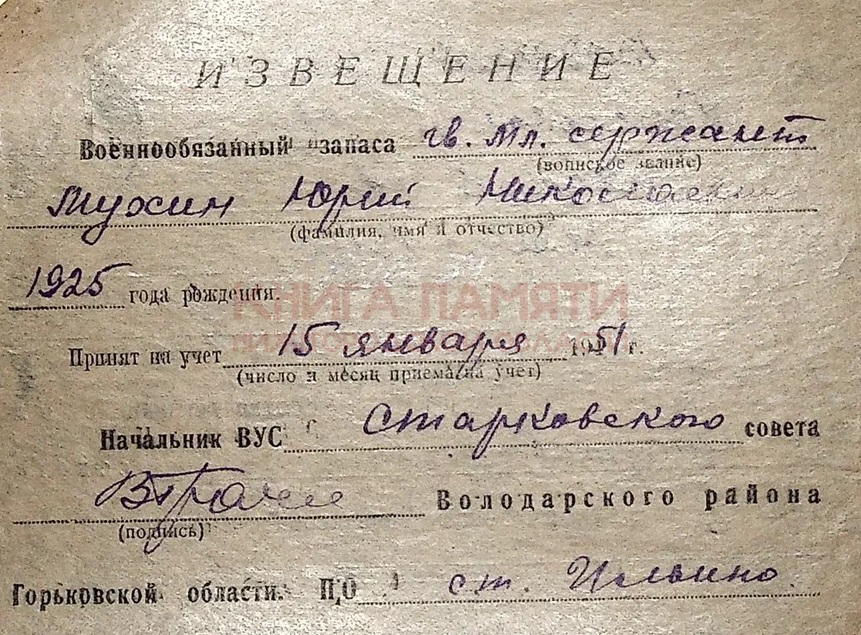 ИЗВЕЩЕНИЕ
Военнообязанный запаса гв. мл. сержант
(воинское звание)
Мухин Юрий Николаевич
(фамилия, имя и отчество)
1925 года рождения.
КНИГА ПАМЯТИ
Принят на учет 15 января 1951 г.
(число и месяц приема на учет)
Начальник ВУС Старковского совета
Володарского района
(подпись)
Горьковской области. П,О ст. Ильино.